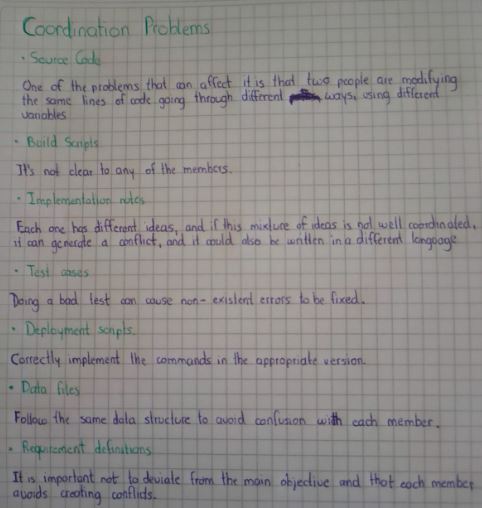 Coordination Problems
• Source Code
One of the problems that can affect it is that two people are modifying
the same lines of code going through different ways, using different
variables
• Build Scripts
It's not clear to any of the members.
• Implementation notes
Each one has different ideas, and if this mixture of ideas is not well coordinated,
it can generate a conflict, and it could also be written in a different language
• Test cases
Doing a bad test can cause non-existent errors to be fixed.
• Deployment scripts.
Correctly implement the commands in the appropriate version.
• Data files
Follow the same data structure to avoid confusion with each member.
• Requirement definitions
It is important not to deviate from the main objective and that each member
avoids creating conflicts.